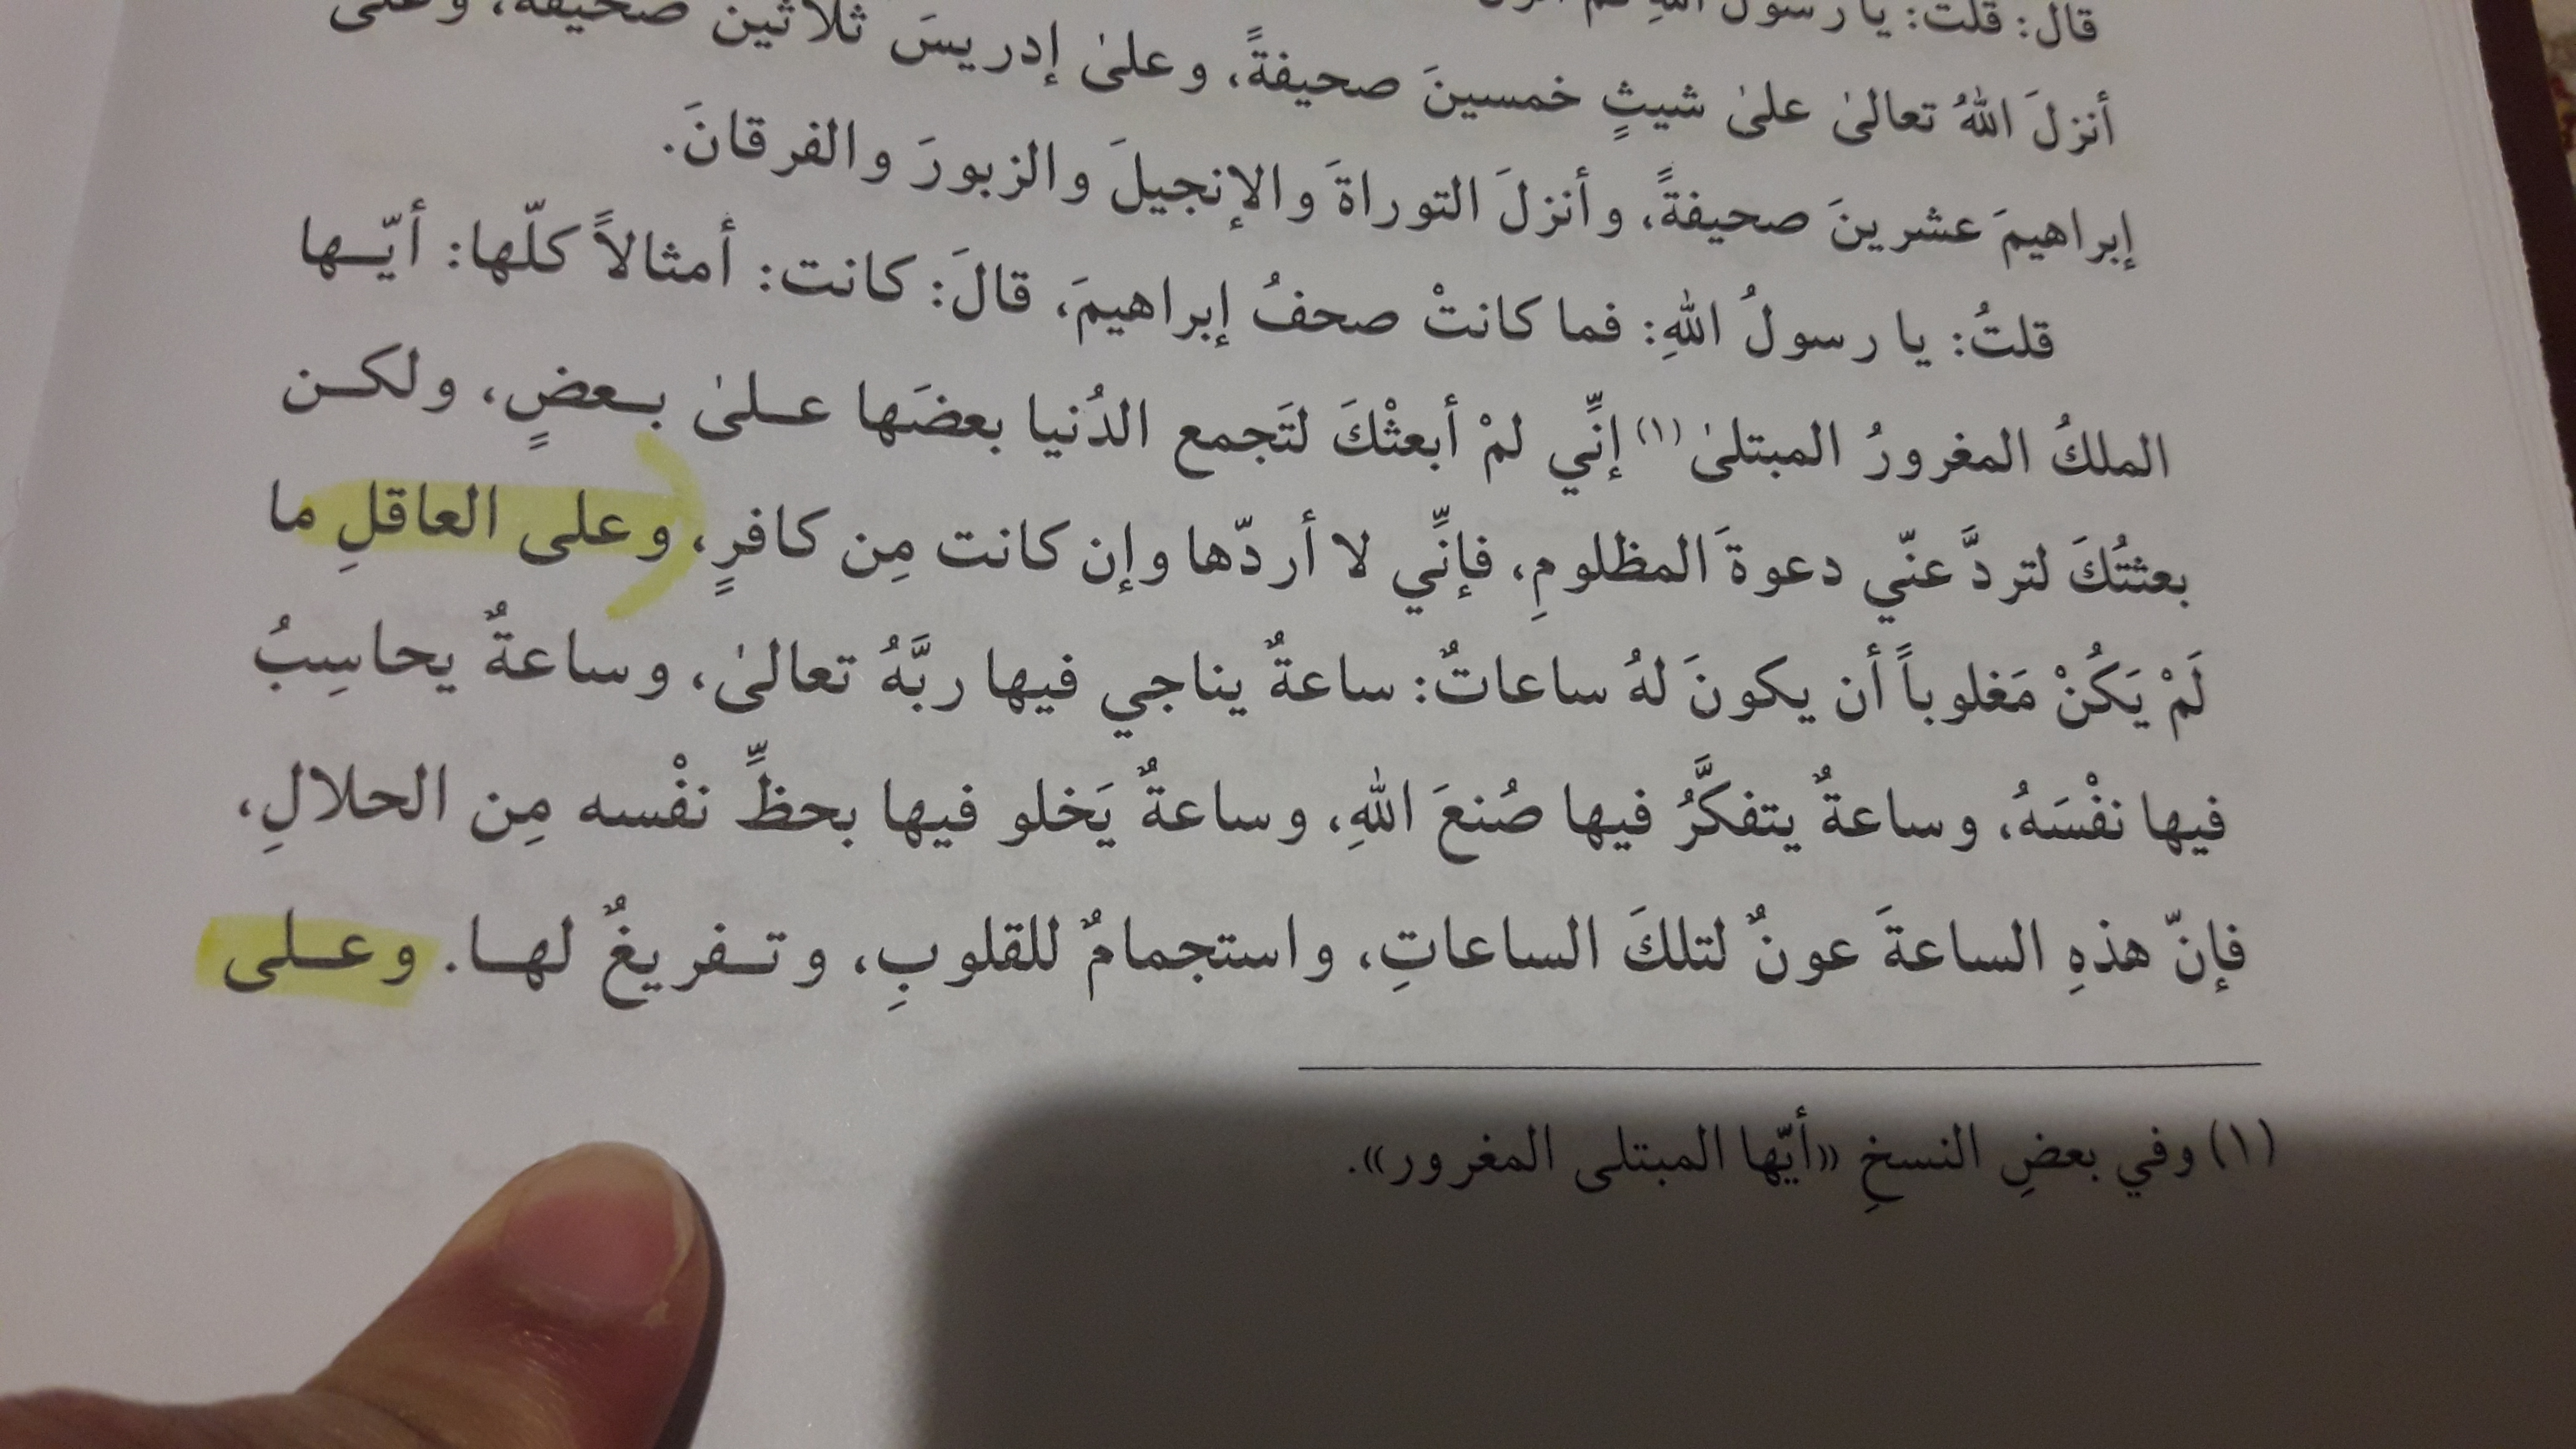 قال: قلت: يا رسول اللهِ كم أنزل
أنزلَ اللهُ تعالىٰ علىٰ شيثٍ خمسينَ صحيفةً، وعلىٰ إدريسَ ثلاثينَ صحيفةً، وعلى
إبراهيمَ عشرينَ صحيفةً، وأنزلَ التوراةَ والإنجيلَ والزبورَ والفرقانَ.
قلتُ: يا رسولُ اللهِ: فما كانتْ صحفُ إبراهيمَ، قالَ: كانت: أمثالاً كلّها: أيّها
الملكُ المغرورُ المبتلىٰ(١) إنِّي لمْ أبعثْكَ لتَجمع الدُنيا بعضَها علىٰ بعضٍ، ولكن
بعثتُكَ لتردَّ عنّي دعوةَ المظلومِ، فإنِّي لا أردّها وإن كانت مِن كافرٍ، وعلى العاقلِ ما
لَمْ يَكُنْ مَغلوباً أن يكونَ لهُ ساعاتٌ: ساعةٌ يناجي فيها ربَّهُ تعالىٰ، وساعةٌ يحاسِبُ
فيها نفْسَهُ، وساعةٌ يتفكَّرُ فيها صُنعَ اللهِ، وساعةٌ يَخلو فيها بحظِّ نفْسه مِن الحلالِ،
فإنّ هذهِ الساعةَ عونٌ لتلكَ الساعاتِ، واستجمامٌ للقلوبِ، وتفريغٌ لها. وعلى
(١) وفي بعضِ النسخِ «أيّها المبتلى المغرور».